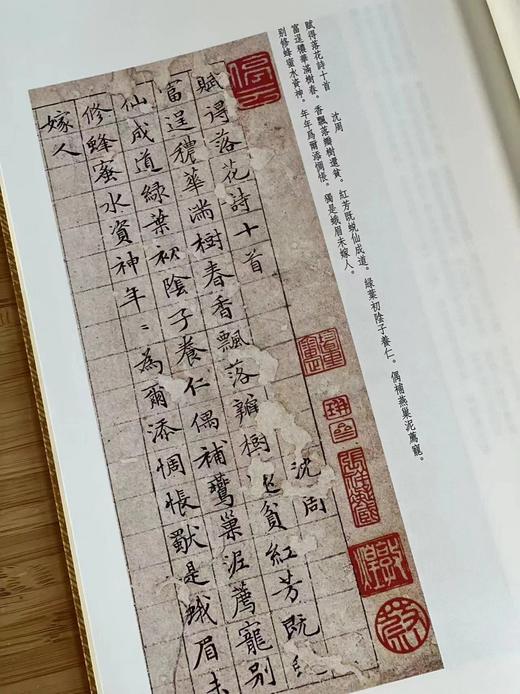 賦得落花詩十首　沈周
富逞穠華滿樹春。香飄落瓣樹還貧。紅芳既蛻仙成道。綠葉初陰子養仁。偶補燕巢泥薦寵。
別修蜂蜜水資神。年年爲爾添惆悵。獨是蛾眉未嫁人。
賦得落花詩十首　沈周
富逞穠華滿樹春香飄落瓣樹還貧紅芳既
仙成道綠葉初陰子養仁偶補鷰巢泥薦寵別
修蜂蜜水資神年〻為爾添惆悵獨是蛾眉未
嫁人